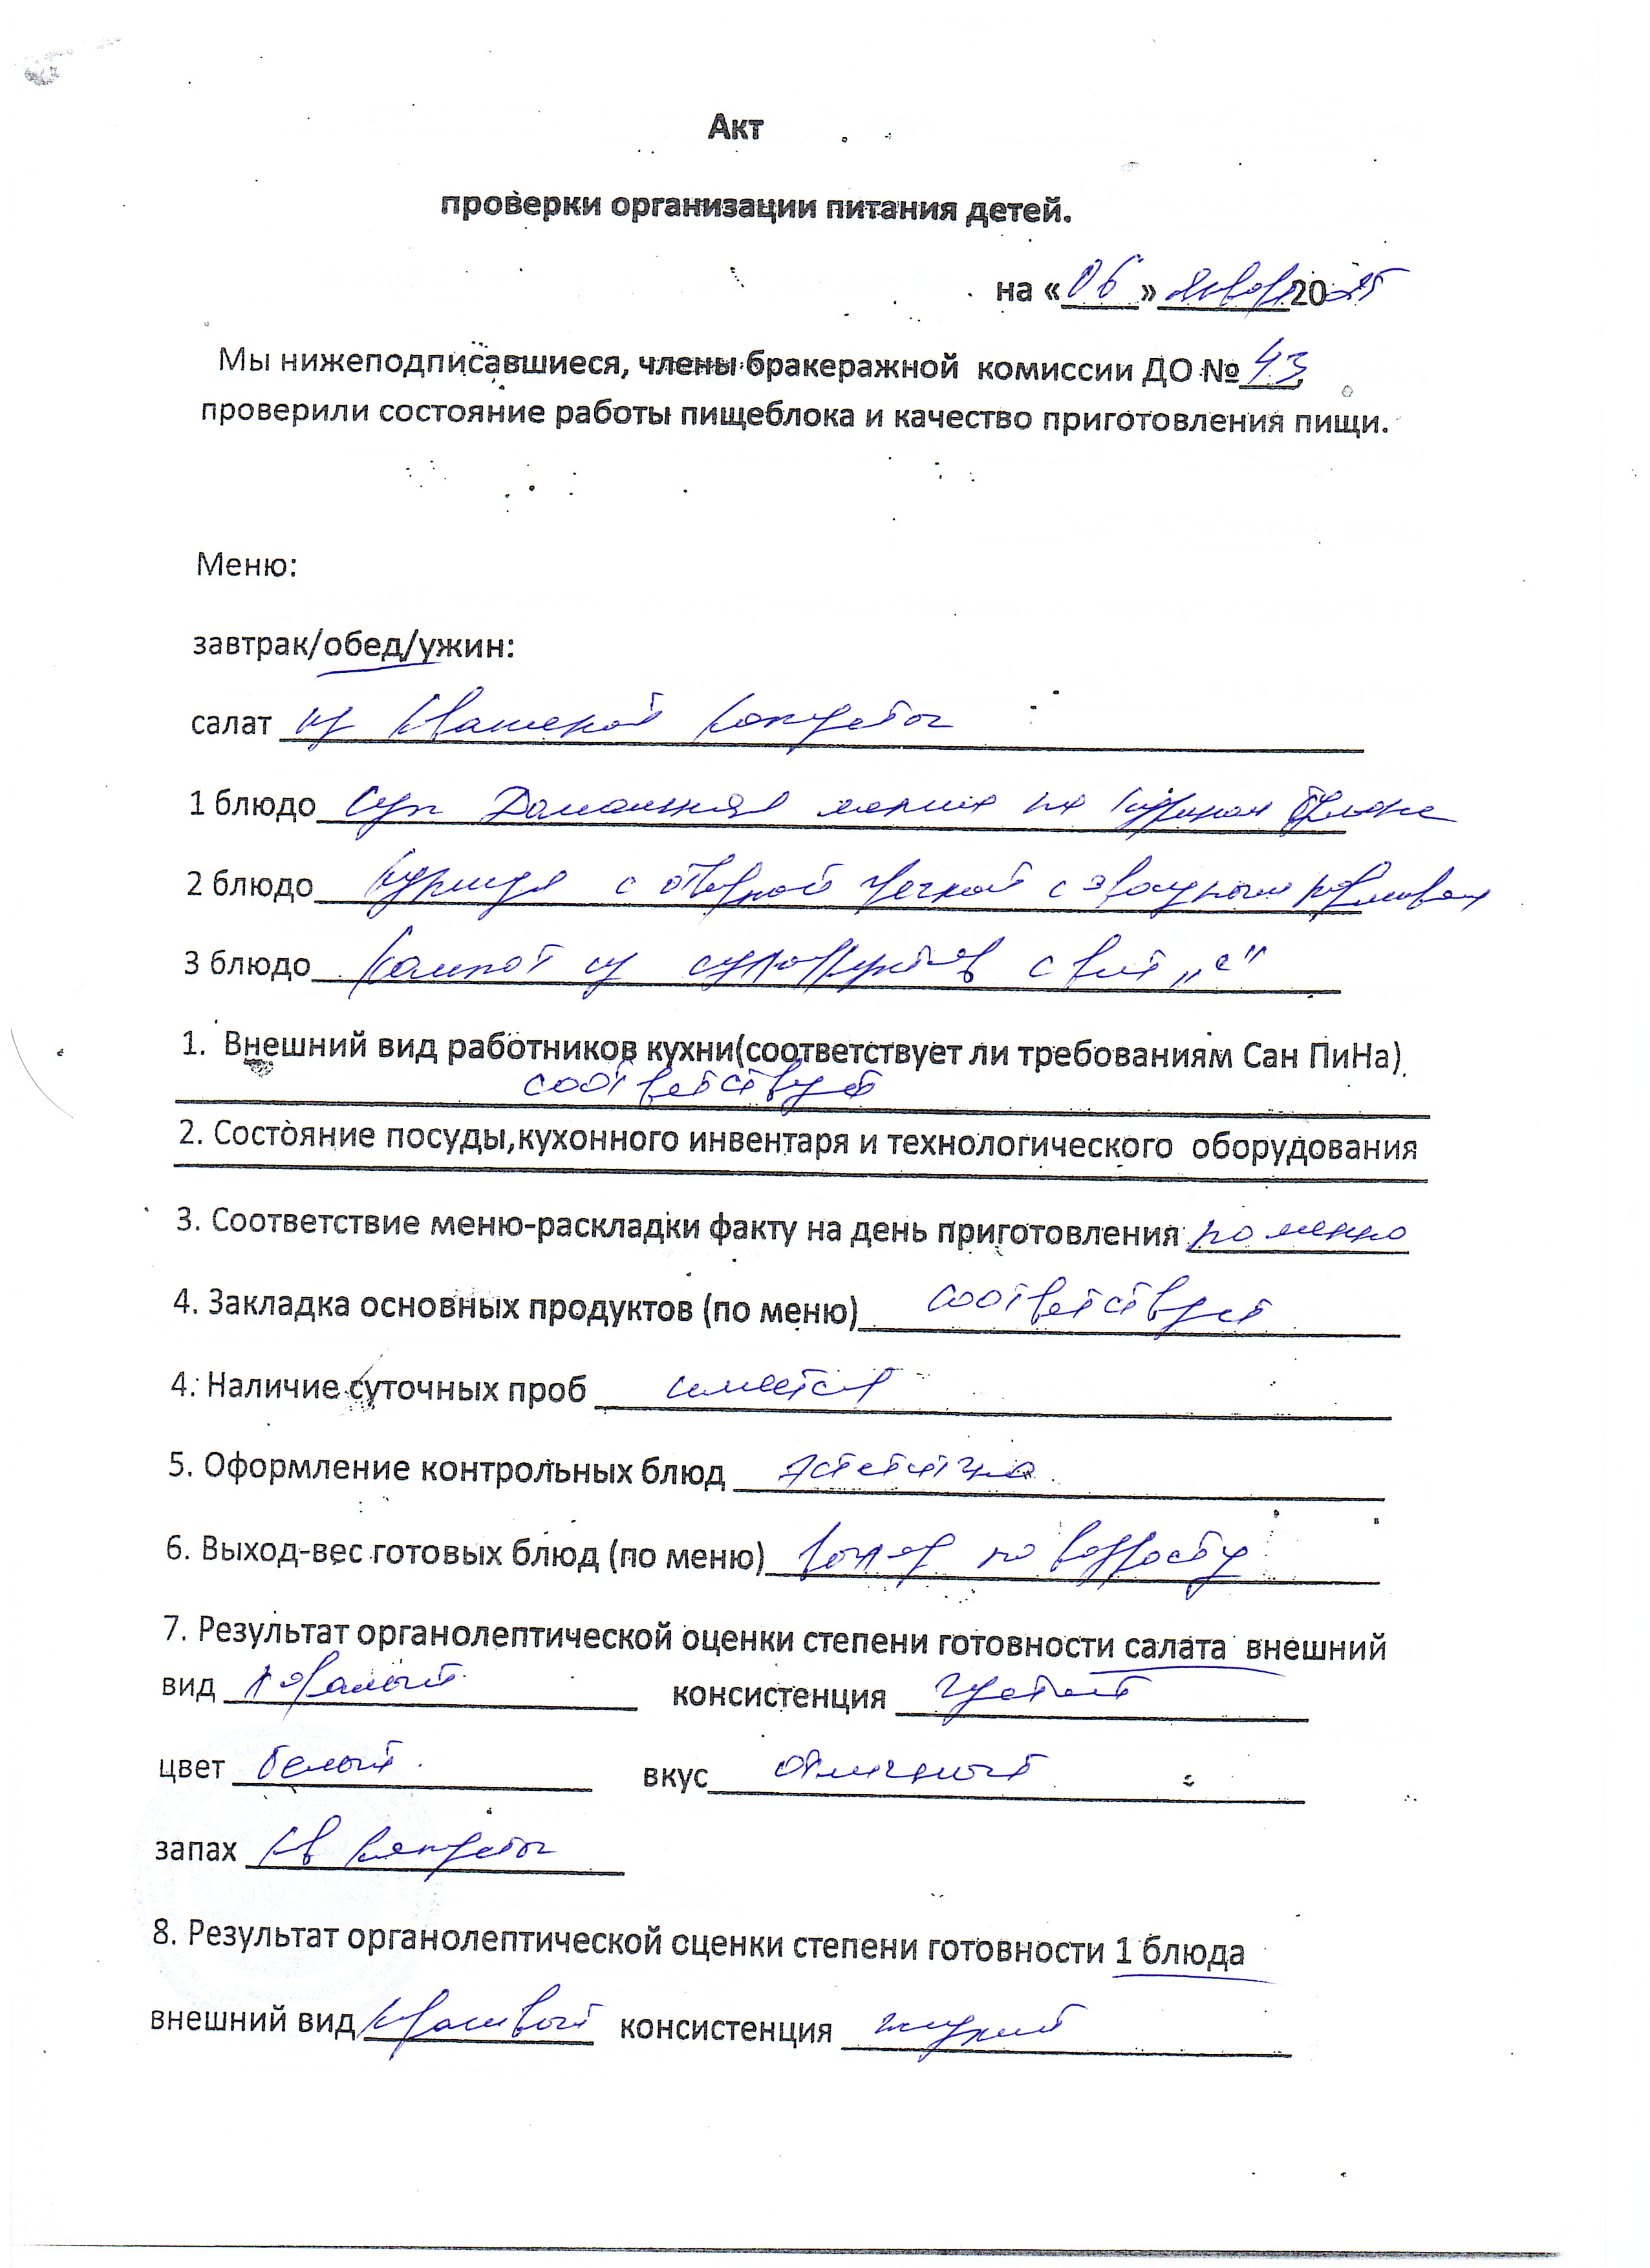 Акт
проверки организации питания детей.
на «06» января 2025
Мы нижеподписавшиеся, члены бракеражной комиссии ДО №43,
проверили состояние работы пищеблока и качество приготовления пищи.
Меню:
завтрак/обед/ужин:
салат из квашеной капусты
1 блюдо суп Домашняя лапша на курином бульоне
2 блюдо курица с отварной гречкой с овощным
3 блюдо компот из сухофруктов с вит „с"
1. Внешний вид работников кухни(соответствует ли требованиям Сан ПиНа)
соответствует
2. Состояние посуды,кухонного инвентаря и технологического оборудования
3. Соответствие меню-раскладки факту на день приготовления по меню
4. Закладка основных продуктов (по меню) соответствует
4. Наличие суточных проб имеется
5. Оформление контрольных блюд эстетично
6. Выход-вес готовых блюд (по меню) по возрасту
7. Результат органолептической оценки степени готовности салата внешний
вид консистенция густой
цвет белый вкус отличный
запах кв капусты
8. Результат органолептической оценки степени готовности 1 блюда
внешний вид красивый консистенция жидкий